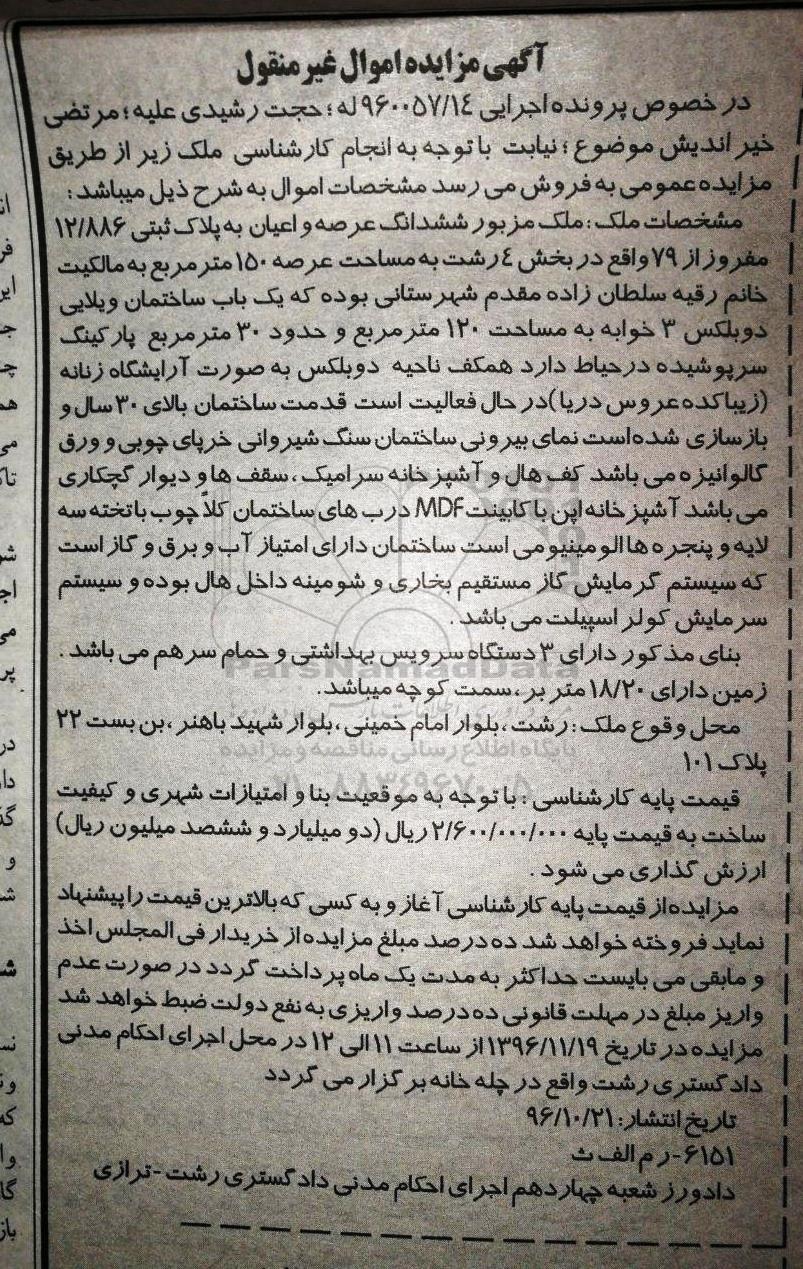 آگهی مزایده اموال غیر منقول
در خصوص پرونده اجرایی ۹۶۰۰۵۷/۱٤ له ؛ حجت رشیدی علیه ؛ مرتضی
خیر اندیش موضوع ؛ نیابت با توجه به انجام کارشناسی ملک زیر از طریق
مزایده عمومی به فروش می رسد مشخصات اموال به شرح ذیل میباشد :
مشخصات ملک : ملک مزبور ششدانگ عرصه و اعیان به پلاک ثبتی ۱۲/۸۸۶
مفروز از ۷۹ واقع در بخش ٤ رشت به مساحت عرصه ۱۵۰ متر مربع به مالکیت
خانم رقیه سلطان زاده مقدم شهرستانی بوده که یک باب ساختمان ویلایی
دوبلکس ۳ خوابه به مساحت ۱۲۰ مترمربع و حدود ۳۰ مترمربع پارکینگ
سرپوشیده در حیاط دارد همکف ناحیه دوبلکس به صورت آرایشگاه زنانه
(زیباکده عروس دریا) در حال فعالیت است قدمت ساختمان بالای ۳۰ سال و
بازسازی شده است نمای بیرونی ساختمان سنگ شیروانی خرپای چوبی و ورق
گالوانیزه می باشد کف هال و آشپزخانه سرامیک ، سقف ها و دیوار گچکاری
می باشد آشپزخانه اپن با کابینت MDF درب های ساختمان کلاً چوب با تخته سه
لایه و پنجره ها الومینیومی است ساختمان دارای امتیاز آب و برق و گاز است
که سیستم گرمایش گاز مستقیم بخاری و شومینه داخل هال بوده و سیستم
سرمایش کولر اسپیلت می باشد .
بنای مذکور دارای ۳ دستگاه سرویس بهداشتی و حمام سرهم می باشد .
زمین دارای ۱۸/۲۰ متر بر ، سمت کوچه میباشد.
محل وقوع ملک : رشت ، بلوار امام خمینی ، بلوار شهید باهنر ، بن بست ۲۲
پلاک ۱۰۱
قیمت پایه کارشناسی : با توجه به موقعیت بنا و امتیازات شهری و کیفیت
ساخت به قیمت پایه ۲/۶۰۰/۰۰۰/۰۰۰ ریال (دو میلیارد و ششصد میلیون ریال)
ارزش گذاری می شود .
مزایده از قیمت پایه کارشناسی آغاز و به کسی که بالاترین قیمت را پیشنهاد
نماید فروخته خواهد شد ده درصد مبلغ مزایده از خریدار فی المجلس اخذ
و مابقی می بایست حداکثر به مدت یک ماه پرداخت گردد در صورت عدم
واریز مبلغ در مهلت قانونی ده درصد واریزی به نفع دولت ضبط خواهد شد
مزایده در تاریخ ۱۳۹۶/۱۱/۱۹ از ساعت ۱۱ الی ۱۲ در محل اجرای احکام مدنی
دادگستری رشت واقع در چله خانه برگزار می گردد
تاریخ انتشار: ۹۶/۱۰/۲۱
۶۱۵۱-ر م الف ث
دادورز شعبه چهاردهم اجرای احکام مدنی دادگستری رشت -ترازی
ParsNamadData
پایگاه اطلاع رسانی مناقصه و مزایده
۰۲۱-۸۸۳۴۹۶۷۰-۵